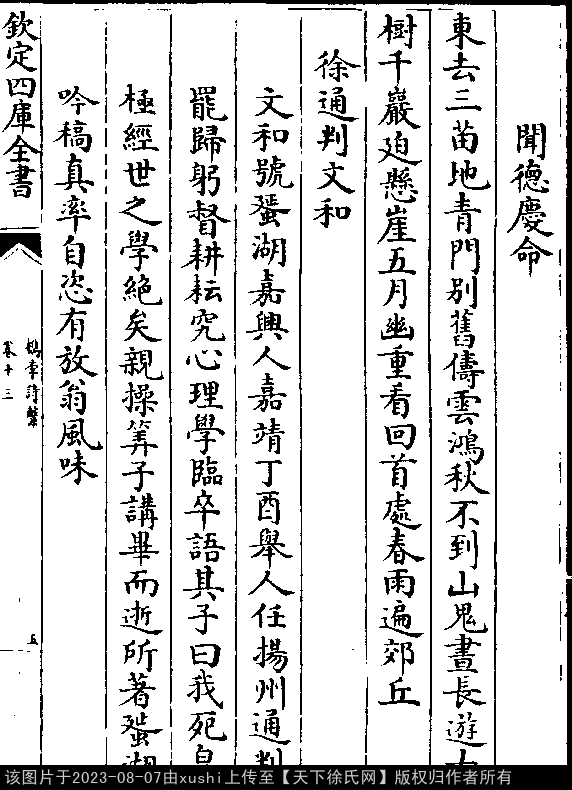 聞德慶命
東去三苗地青門別舊儔雲鴻秋不到山鬼晝長遊
樹千巖廹懸崖五月幽重看回首處春雨遍郊丘
徐通判文和
文和號蜑湖嘉興人嘉靖丁酉舉人任揚州通判
罷歸躬督耕耘究心理學臨卒語其子曰我死皇
極經世之學絶矣親操筭子講畢而逝所著蜑湖
吟稿真率自恣有放翁風味
欽定四庫全書
檇李詩繫
卷十三
五
该图片于2023-08-07由xushi上传至【天下徐氏网】版权归作者所有